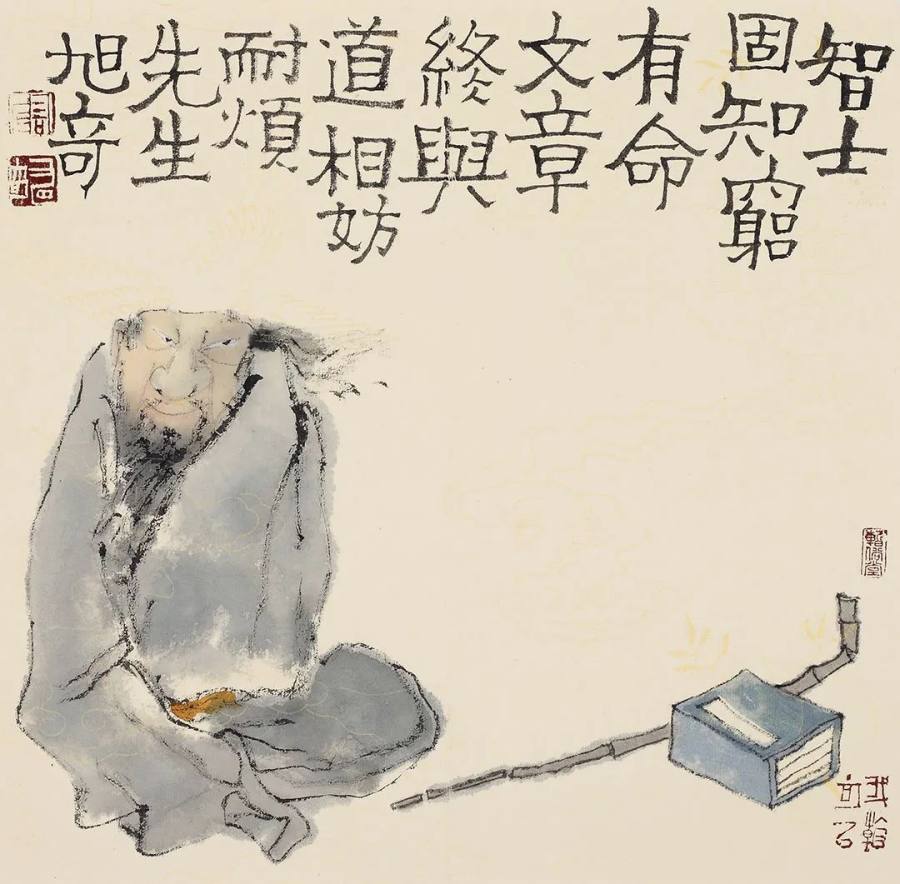 智士
固知窮
有命
文章
終與
道相妨
耐煩
先生
旭奇